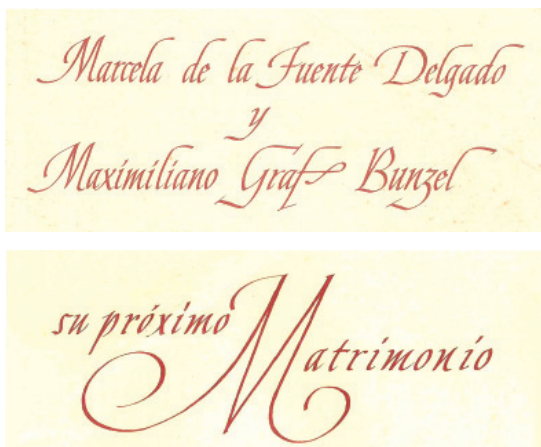 Marcela de la Fuente Delgado
y
Maximiliano Graf Bunzel
su próximo Matrimonio